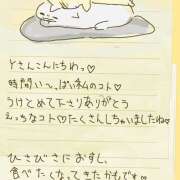 Yさんこんにちわっ♡
時間いっ、ぱい私のコト♡
うけとめて下さりありがとう
えっちなコト♡たくさんしちゃいましたね♡
ひさびさにおすし、
食べたくなってきたかもです♡